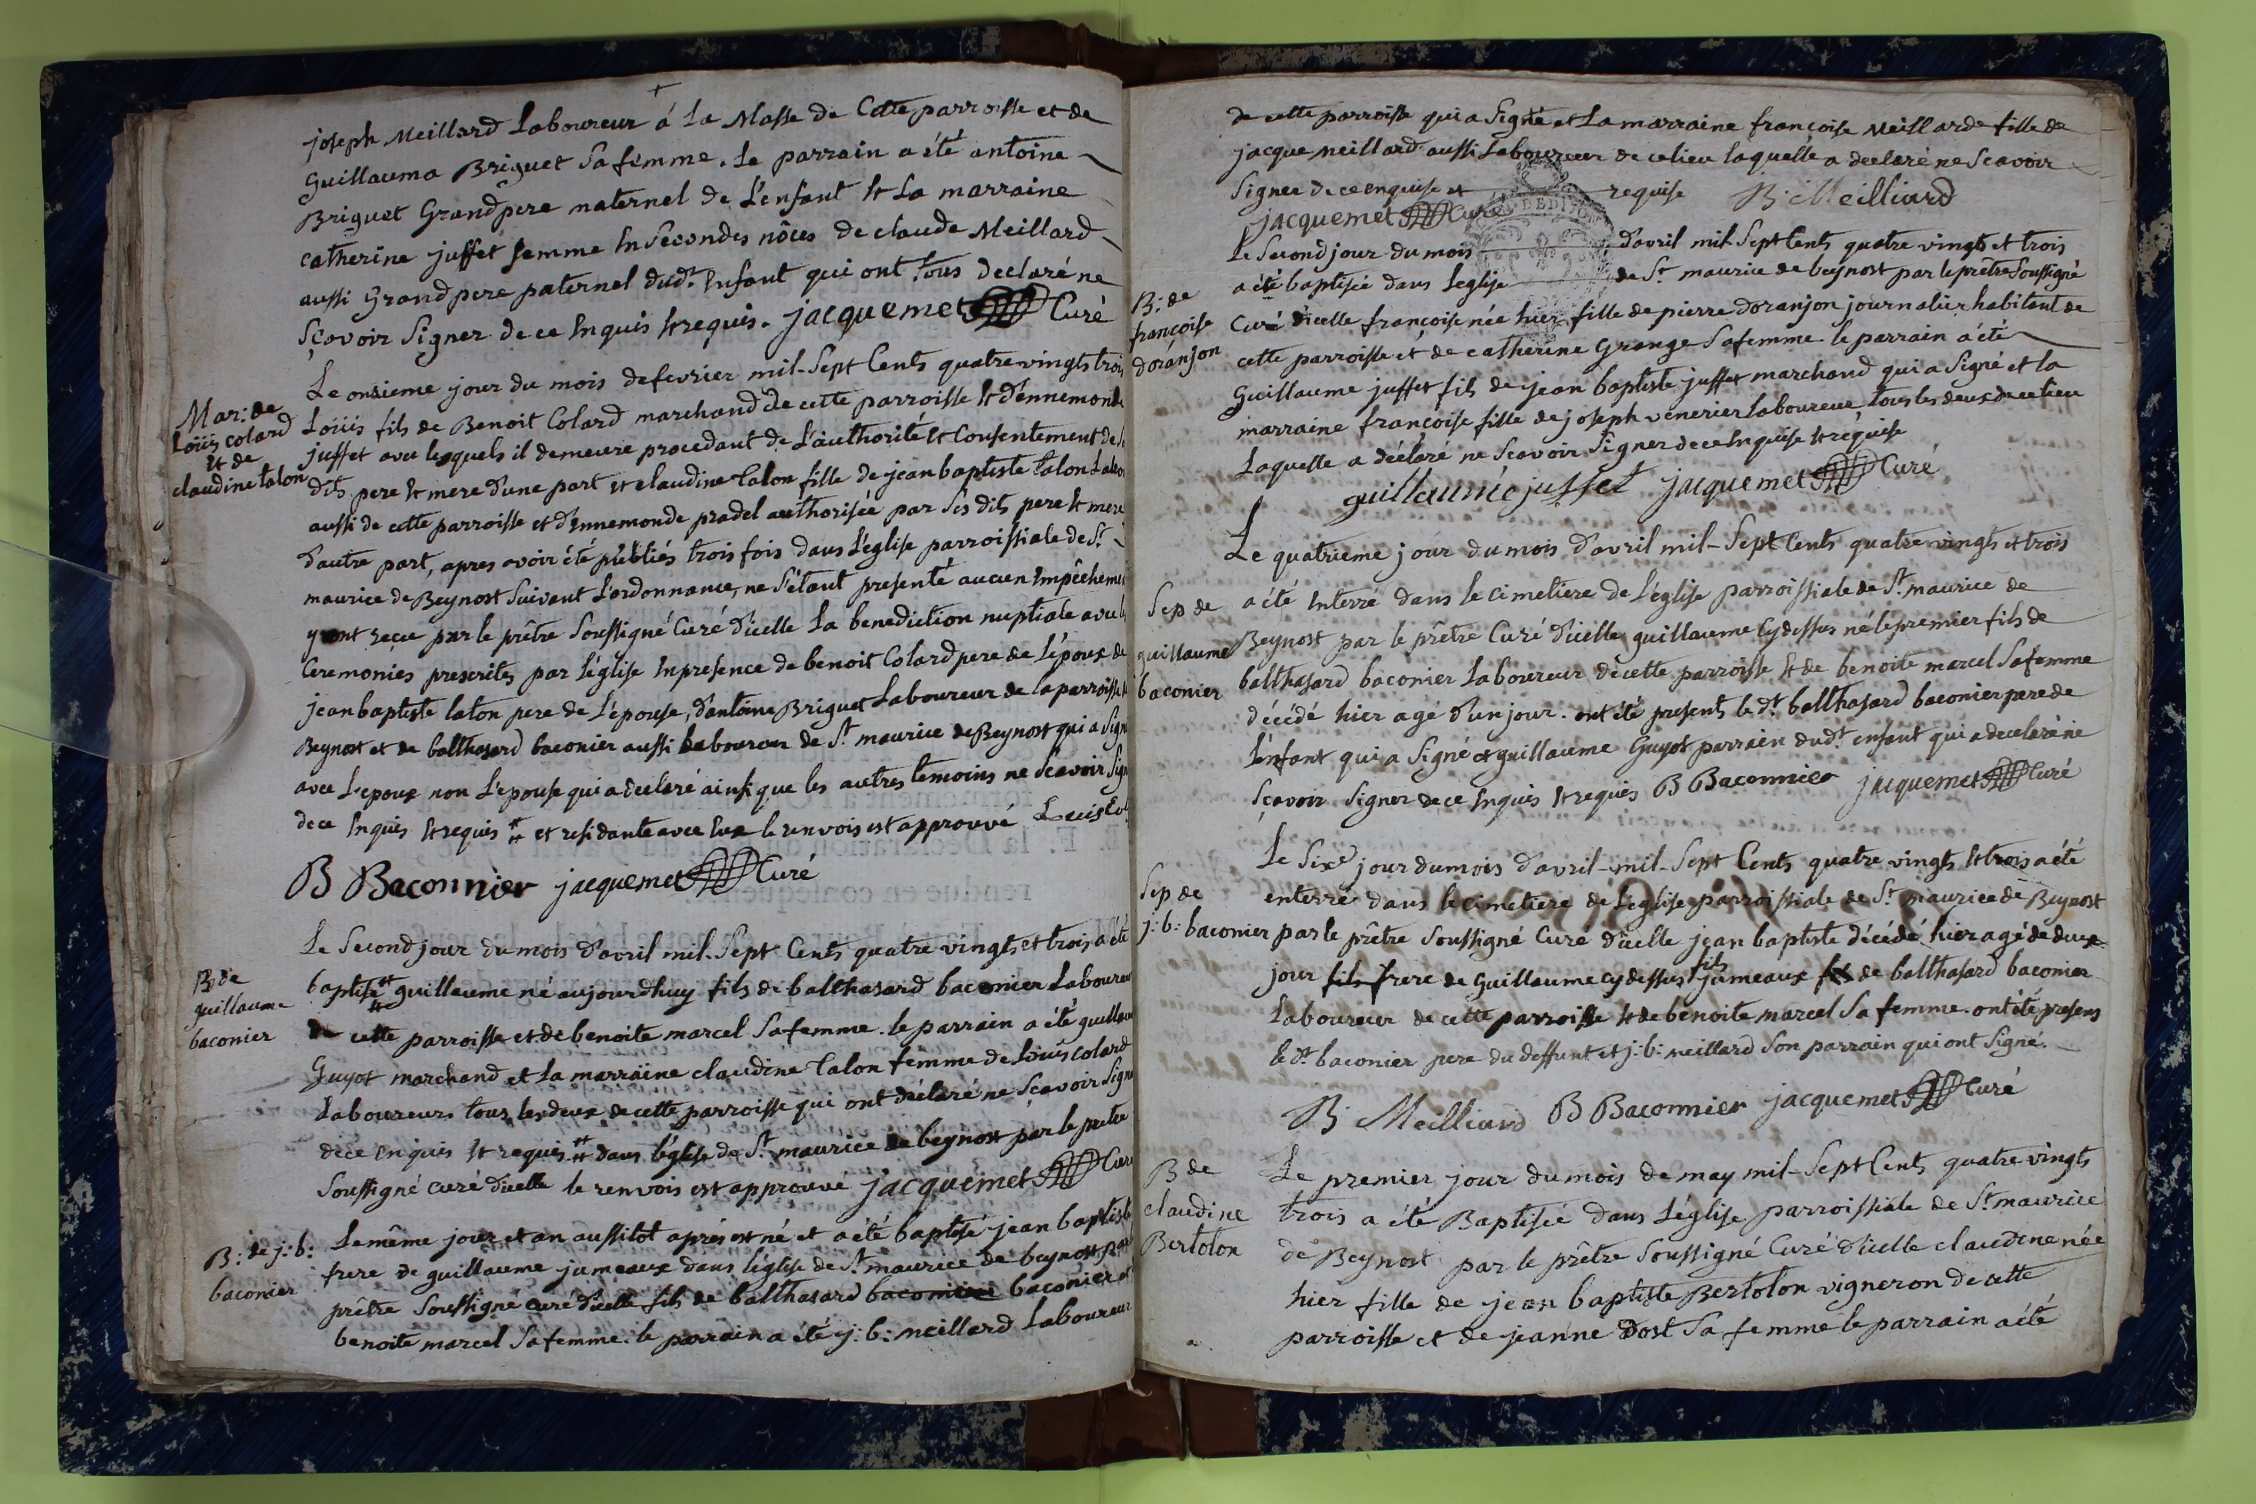 joseph Meillard Laboureur á La Masse de Cette parroisse et de
Guillauma Briguet Sa femme. Le parrain a été antoine
Briguet Grand pere maternel de L'enfant et La marraine
catherine juffet femme En Secondes nôces de claude Meillard
aussi Grand pere paternel dud.t Enfant qui ont tous declaré ne
Sçavoir Signer de ce Enquis et requis. jacquemet Curé
Mar: de
Loüis colard
et de
claudine talon
Le onzieme jour du mois de fevrier mil-Sept Cents quatre vingts trois
Loüis fils de Benoit Colard marchand de cette parroisse et d'Ennemonde
juffet avec lesquels il demeure procedant de L'authorité et Consentement de
dits pere et mere d'une part et claudine talon fille de jean baptiste talon
aussi de cette parroisse et d'Ennemonde pradel authorisée par Ses dits pere et mere
d'autre part, apres avoir été publiés trois fois dans L'église parroissiale de St.
maurice de Beynost Suivant L'ordonnance, ne S'étant presenté aucun Empêchement
y ont reçu par le prêtre Soussigné Curé d'icelle La benediction nuptiale avec
Ceremonies prescrites par L'église En presence de benoit Colard pere de L'époux de
jean baptiste talon pere de L'épouse, d'antoine Briguet Laboureur de la parroisse
Beynost et de balthasard baconier aussi Laboureur de St. maurice de Beynost qui a Signé
avec L'epoux non L'epouse qui a declaré ainsi que les autres temoins ne Scavoir Signer
de ce Enquis et requis et residante avec Eux le renvois est approuvé Louis Col
B Baconnier jacquemet Curé
B de
guillaume
baconier
Le Second jour du mois d'avril mil-Sept Cents quatre vingts et trois a été
baptisé guillaume né aujourdhuy fils de balthasard baconier Laboureur
de cette parroisse et de benoite marcel Sa femme. le parrain a été guillaume
Guyot marchand et La marraine claudine talon femme de Loüis Colard
Laboureurs tous les deux de cette parroisse qui ont déclaré ne Scavoir Signer
de ce enquis et requis dans l'église de St. maurice de beynost par le prêtre
Soussigné curé d'icelle le renvois est approuvé jacquemet Curé
B: de j: b:
baconier
Le même jour et an aussitot aprés est né et a été baptisé jean baptiste
frere de guillaume jumeaux dans l'église de St. maurice de beynost par
prêtre Soussigné curé d'icelle fils de balthasard baconier baconier et
benoite marcel Sa femme. le parrain a été j: b: meillard Laboureur
de cette parroisse qui a Signé et La marraine françoise Meillard fille de
jacque meillard aussi Laboureur de ce lieu laquelle a declaré ne Scavoir
Signer de ce enquise et requise B: Meilliard
jacquemet Curé
B: de
françoise
doranjon
Le Second jour du mois d'avril mil-Sept Cents quatre vingts et trois
a été baptisée dans Leglise de St. maurice de beynost par le prêtre Soussigné
Curé d'icelle françoise née hier fille de pierre doranjon journalier habitant de
cette parroisse et de catherine Grange Sa femme. le parrain a été
Guillaume juffet fils de jean baptiste juffet marchand qui a Signé et la
marraine françoise fille de joseph venerier Laboureur, tous les deux de ce lieu
Laquelle a déclaré ne Scavoir Signer de ce Enquise et requise
guillaume juffet jacquemet Curé
Sep de
guillaume
baconier
Le quatrieme jour du mois d'avril mil-Sept Cents quatre vingts et trois
a été Enterré dans le cimetiere de L'église parroissiale de St. maurice de
Beynost par le prêtre Curé d'icelle guillaume Cy dessus né le premier fils de
balthasard baconier Laboureur de cette parroisse et de benoite marcel Sa femme
décédé hier agé d'un jour. ont été presents le dt. balthasard baconier pere de
L'enfant qui a Signé et guillaume Guyot parrain dudt. enfant qui a declaré ne
Sçavoir Signer de ce Enquis et requis B Baconnier jacquemet Curé
Sep de
j: b: baconier
Le Sixe jour du mois d'avril-mil-Sept Cents quatre vingts et trois a été
enterré dans le cimetiere de L'église parroissiale de St. maurice de Beynost
par le prêtre Soussigné Curé d'icelle jean baptiste décédé hier agé de deux
jour fils frere de Guillaume cy dessus jumeaux fils de balthasard baconier
Laboureur de cette parroisse et de benoite marcel Sa femme. ont été presens
le dt. baconier pere du deffunt et j: b: meillard Son parrain qui ont Signé.
B: Meilliard B Baconnier jacquemet Curé
B de
claudine
Bertolon
Le premier jour du mois de may mil-Sept Cents quatre vingts
trois a été Baptisée dans L'église parroissiale de St. maurice
de Beynost par le prêtre Soussigné Curé d'icelle claudine née
hier fille de jean baptiste Bertolon vigneron de cette
parroisse et de jeanne Dost Sa femme le parrain a été